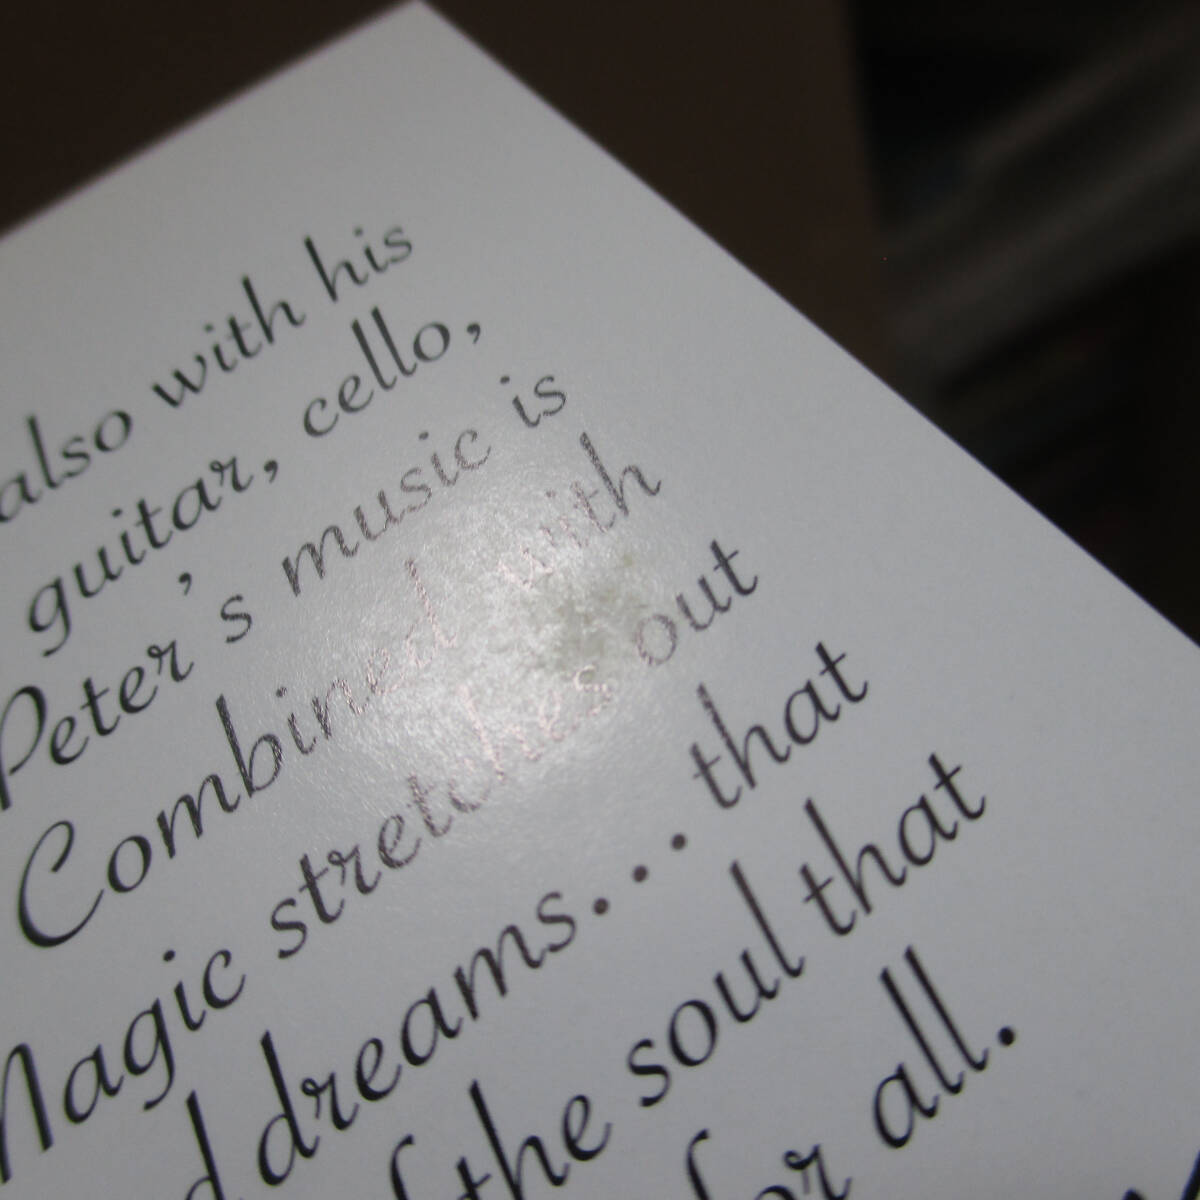 also with his
guitar, cello,
Peter's music is
Combined with
Magic stretches out
dreams... that
the soul that
for all.